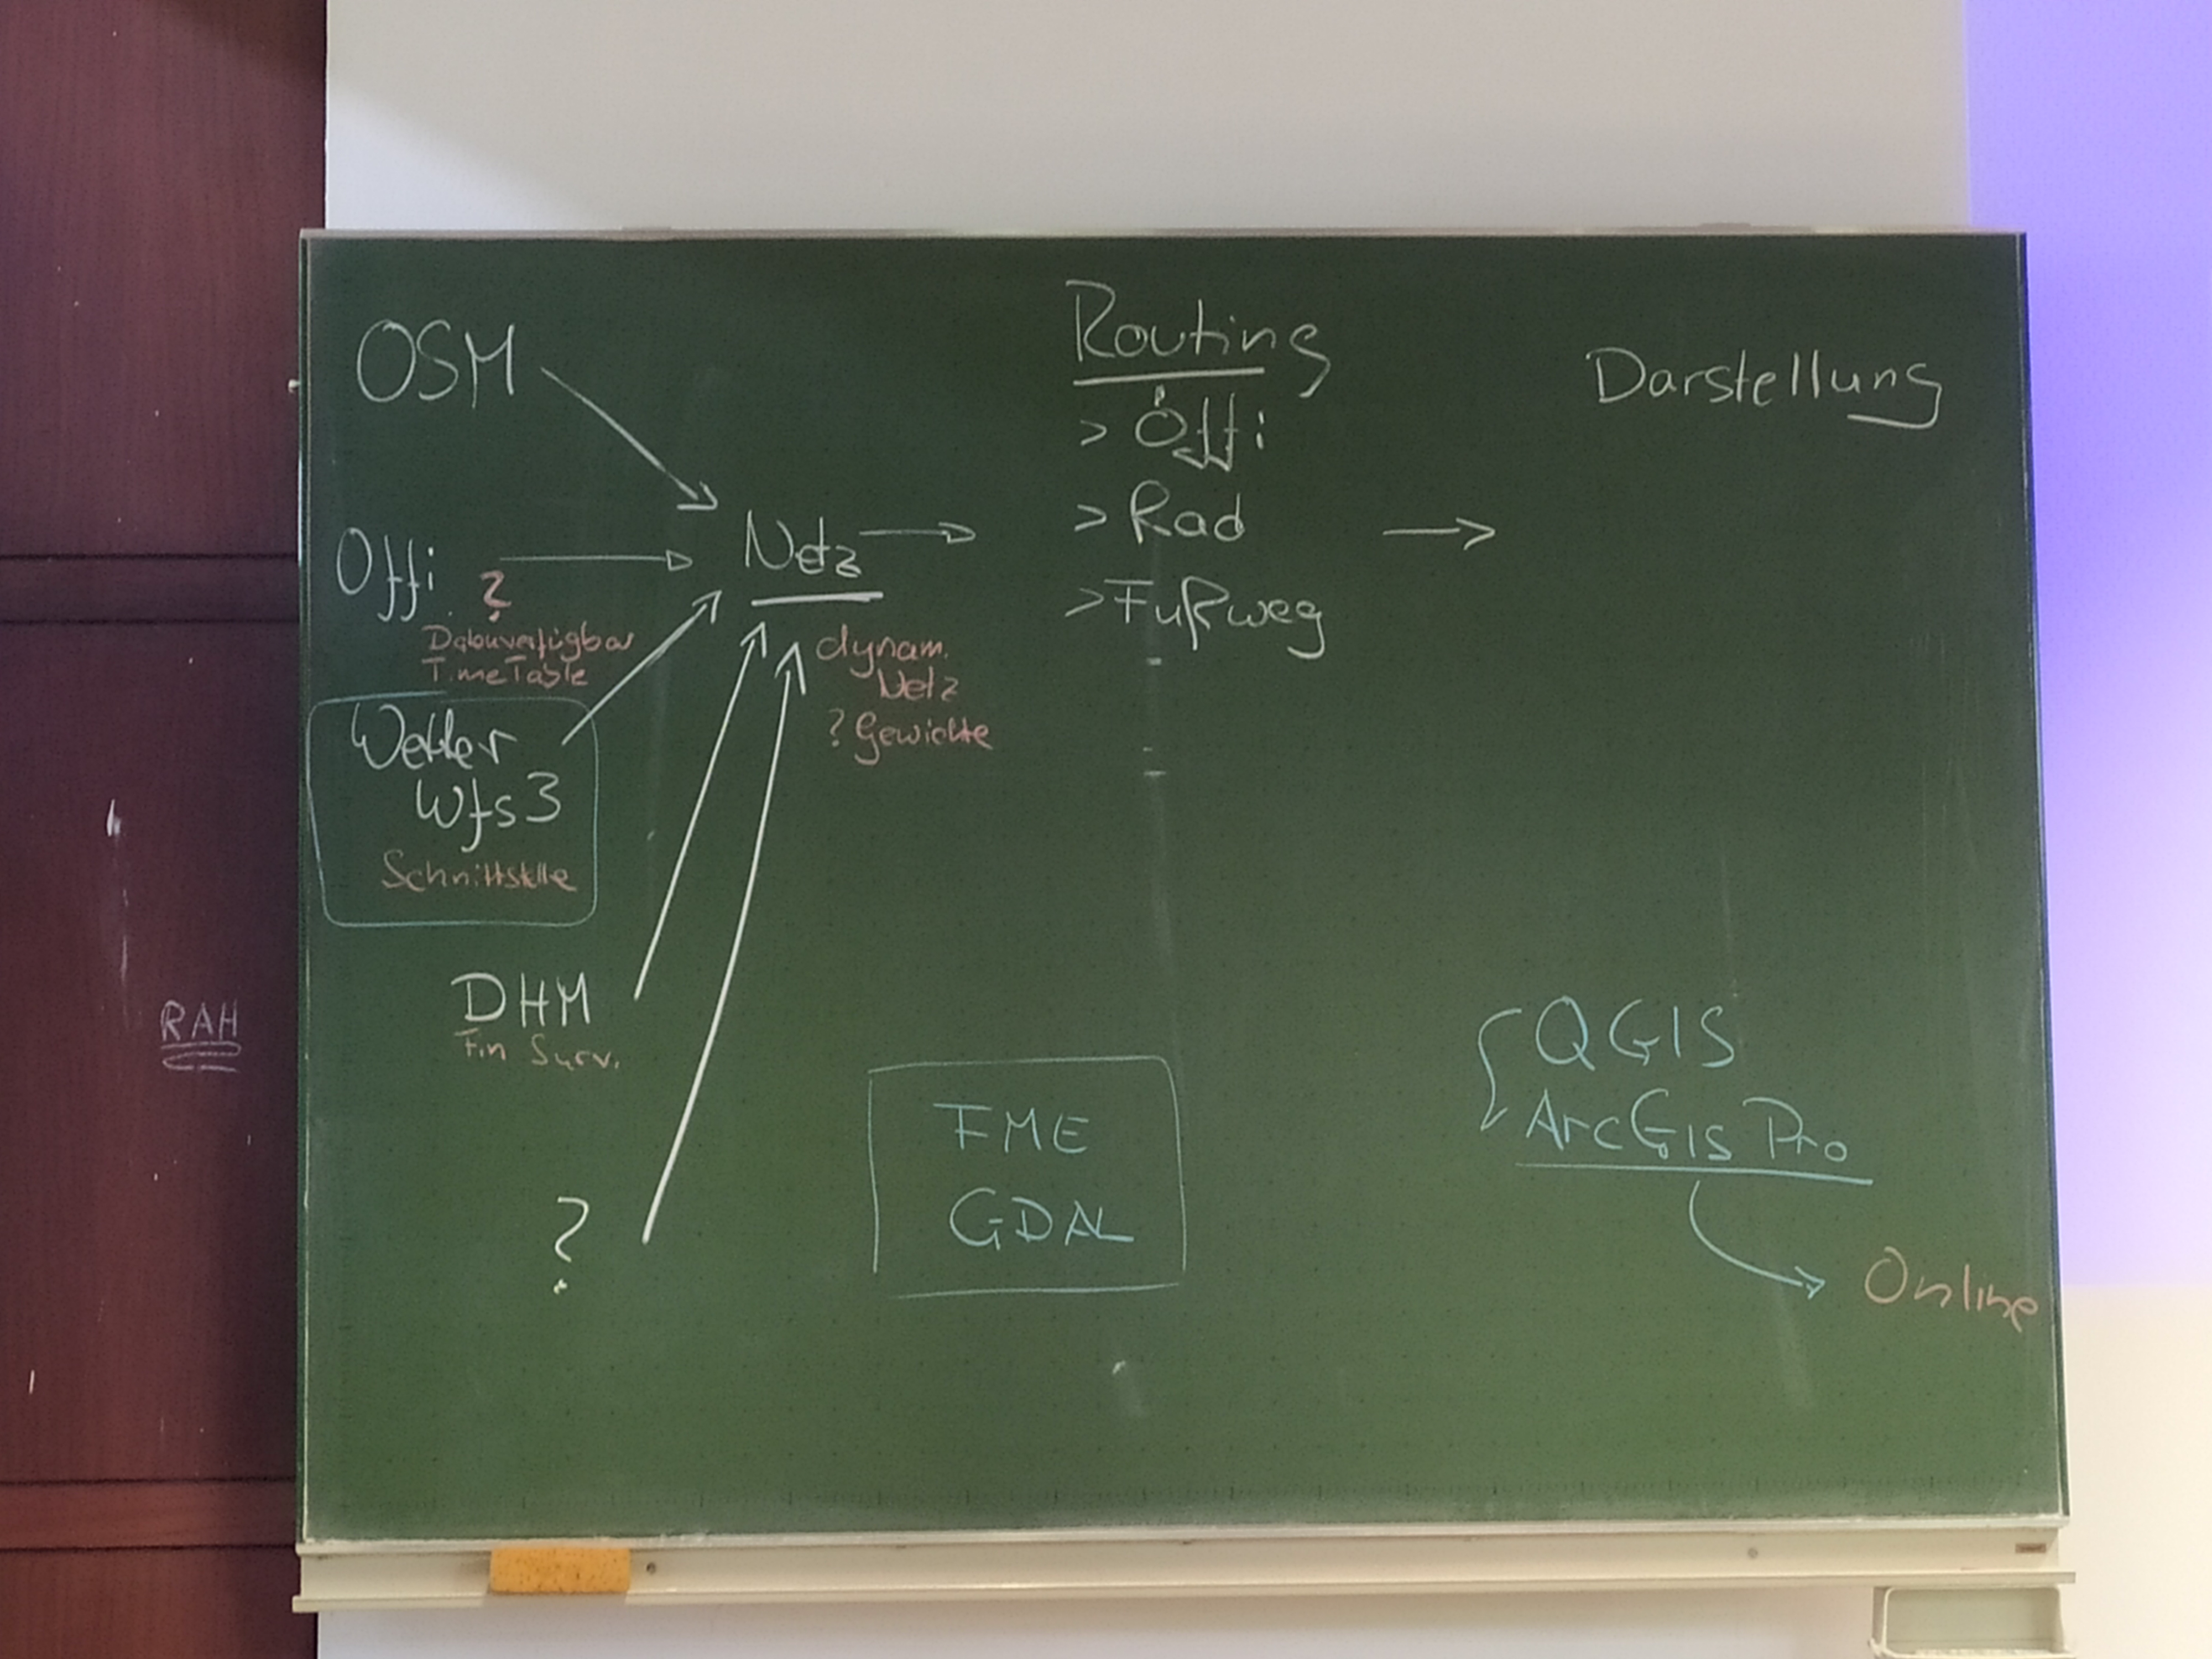 OSM
Öffi
?
Datenverfügbar
TimeTable
Wetter
Wfs3
Schnittstelle
DHM
Fin Surv.
?
Netz
dynam.
Netz
? Gewichte
Routing
> Öffi
> Rad
> Fußweg
Darstellung
FME
GDAL
QGIS
ArcGIS Pro
Online
RAH